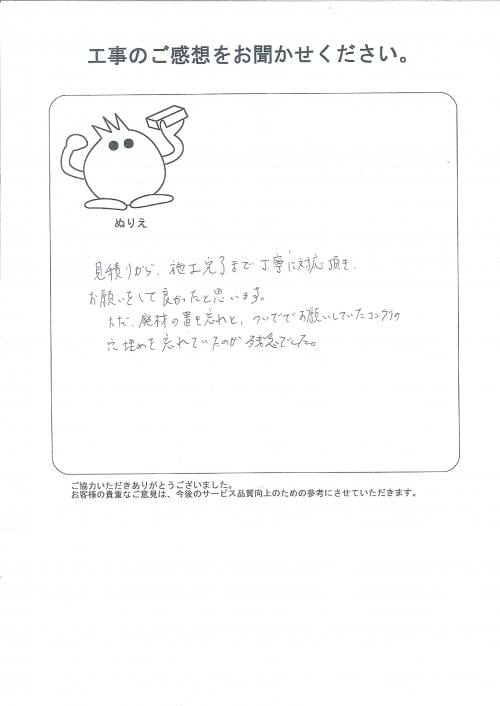 工事のご感想をお聞かせください。
ぬりえ
見積りから、施工完了まで丁寧に対応頂き、
お願いをして良かったと思います。
ただ、廃材の置き忘れと、ついででお願いしていたコンクリの
穴埋めを忘れていたのが残念でした。
ご協力いただきありがとうございました。
お客様の貴重なご意見は、今後のサービス品質向上のための参考にさせていただきます。